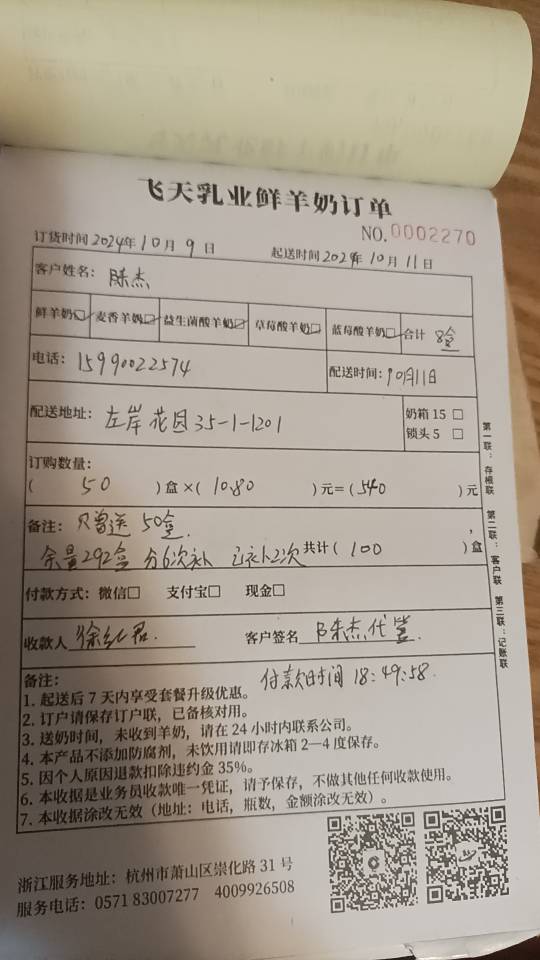 飞天乳业鲜羊奶订单
NO.0002270
订货时间 2024年 10月 9日 起送时间 2024年 10月 11日
客户姓名： 陈杰
鲜羊奶□ 麦香羊奶□ 益生菌酸羊奶☑ 草莓酸羊奶□ 蓝莓酸羊奶□ 合计 8盒
电话： 15990022574 配送时间： 10月11日
配送地址： 左岸花园35-1-1201 奶箱 15 □
锁头 5 □
订购数量：
( 50 )盒 ×( 10.80 )元=( 540 )元
备注： 只曾送 50盒
余量292盒 分6次补 已补2次 共计( 100 )盒
付款方式： 微信□ 支付宝□ 现金□
收款人 徐红君. 客户签名 陈杰代签.
备注： 付款时间 18:49:58.
1. 起送后 7 天内享受套餐升级优惠。
2. 订户请保存订户联，已备核对用。
3. 送奶时间，未收到羊奶，请在 24 小时内联系公司。
4. 本产品不添加防腐剂，未饮用请即存冰箱 2—4 度保存。
5. 因个人原因退款扣除违约金 35%。
6. 本收据是业务员收款唯一凭证，请予保存，不做其他任何收款使用。
7. 本收据涂改无效（地址：电话，瓶数，金额涂改无效）。
浙江服务地址：杭州市萧山区崇化路 31 号
服务电话：0571 83007277 4009926508
第一联：存根联 第二联：客户联 第三联：记账联